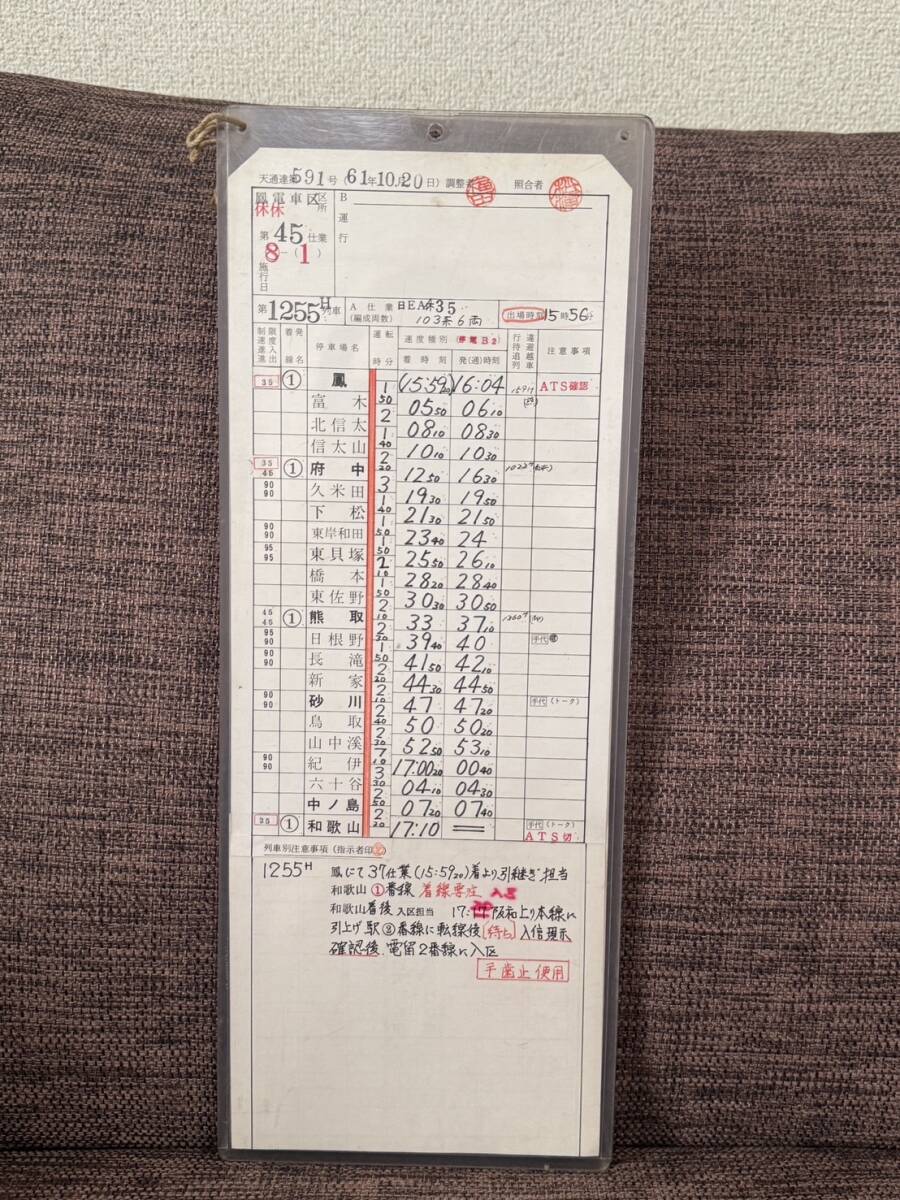 天通達第591号(61年10月20日) 調整者 照合者
鳳電車区 区所
休休
第45仕業
8-(1)
施行日
B運行
第1255H列車 A仕業 日EA休35
(編成両数) 103系6両
出場時刻 15時56分
制限速度 進入進出 着発線名 停車場名 運転時分 速度種別 (停電B2) 着時刻 発(通)時刻 行違待避追越列車 注意事項
35 ① 鳳 (15:5920) 16:04 ATS確認
1 50
富木 0550 0610
2
北信太 0810 0830
1 40
信太山 1010 1030
2 20
35 45 ① 府中 1250 1630
3
90 90 久米田 1930 1950
1 40
下松 2130 2150
1 50
90 90 東岸和田 2340 24
1 50
95 95 東貝塚 2550 2610
2 10
橋本 2820 2840
1 50
東佐野 3030 3050
2 10
45 45 ① 熊取 33 3710
2 30
95 90 日根野 3940 40 手代
1 50
90 90 長滝 4150 4210
2 20
新家 4430 4450
2 10
90 90 砂川 47 4720 手代 (トーク)
2 40
鳥取 50 5020
2 30
山中溪 5250 5310
7 10
90 90 紀伊 17:0020 0040
3 30
六十谷 0410 0430
2 50
中ノ島 0720 0740
2 20
35 ① 和歌山 17:10 = 手代 (トーク)
ATS切
列車別注意事項 (指示者印)
1255H 鳳にて37仕業(15:5920)着より引継ぎ担当
和歌山①番線 着線専注 入区
和歌山着後 入区担当 17: 阪和上り本線に
引上げ駅②番線に転線後 待ち 入信現示
確認後、電留2番線に入区
手歯止使用